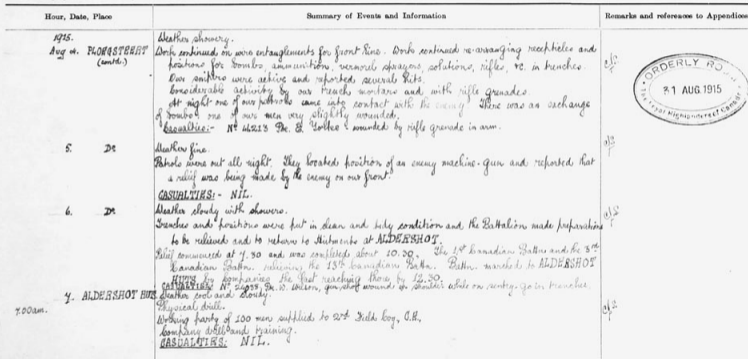 Hour, Date, Place
Summary of Events and Information
Remarks and references to Appendices
1915.
Weather showery.
Aug 4. PLOEGSTEERT
(contd.)
Work continued on wire entanglements for front line. Work continued re-arranging recepticles and
positions for bombs, ammunition, vermorel sprayers, solutions, rifles, &c. in trenches.
Our snipers were active and reported several hits.
Considerable activity by our trench mortars and with rifle grenades.
At night one of our patrols came into contact with the enemy. There was an exchange
of bombs, one of our men very slightly wounded.
Casualties:- No 46213 Pte. E. wounded by rifle grenade in arm.
ORDERLY ROOM
31 AUG. 1915
Royal Highlanders of Canada
5. Do
Weather fine.
Patrols were out all night. They located position of an enemy machine-gun and reported that
a relief was being made by the enemy on our front.
CASUALTIES:- NIL.
6. Do
Weather cloudy with showers.
Trenches and positions were put in clean and tidy condition and the Battalion made preparations
to be relieved and to return to Hutments at ALDERSHOT.
Relief commenced at 7.30 and was completed about 10.30. The 1st Canadian Battn and the 3rd
Canadian Battn. relieving the 13th Canadian Battn. Battn. marched to ALDERSHOT
HUTS by companies the last reaching there by 12.30.
CASUALTIES: No Pte. W. Wilson, gun shot wound in shoulder while on sentry-go in trenches.
7. ALDERSHOT HUTS
Weather cool and cloudy.
7.00am.
Physical drill.
Working party of 100 men supplied to 2nd Field Coy, C.E.,
Company drill and training.
CASUALTIES: NIL.